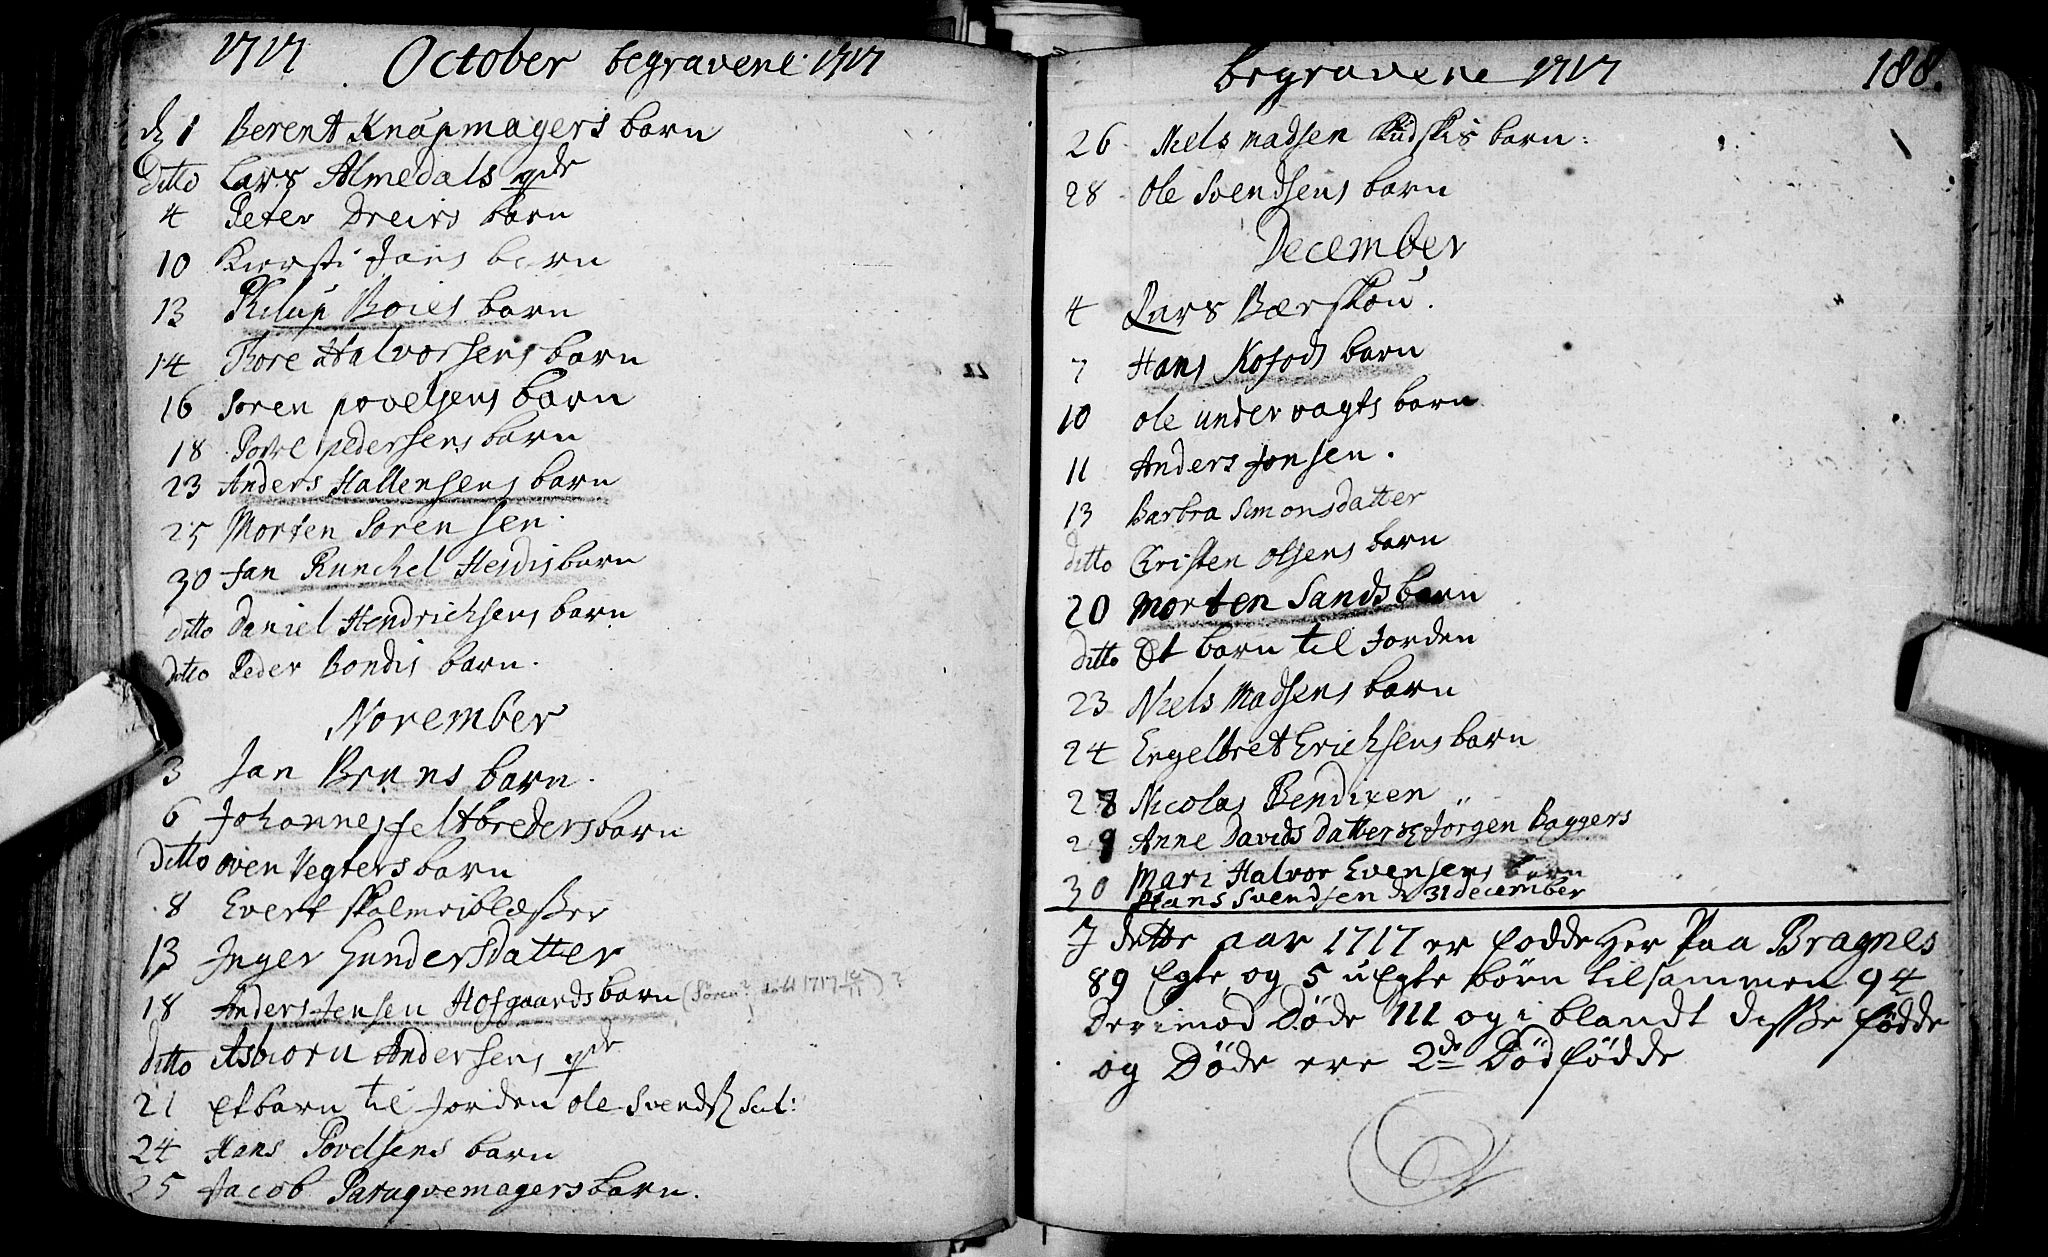 1717 October begravene 1717
d 1 Berent Knapmagers barn
ditto Lars Almedals qde
4 Peter Dreirs barn
10 Kiersti Jans barn
13 Philip Boies barn
14 Thore Halvorsens barn
16 Soren povelsens barn
18 Povel pedersens barn
23 Anders Hallensens barn
25 Morten Sorensen.
30 Jan Runchel Heidis barn
ditto Daniel Hendrichsens barn
ditto Peder Bondis barn.
November
3 Jan Bruns barn.
6 Johannes feltbreders barn
Ditto oven Vegters barn
8 Evert skalmeiblæsser
13 Inger Gundersdatter
18 Anders Jensen Hofgaards barn (Søren? død 1717 /11) ?
ditto Asbiorn Andersens qde
21 et barn til Jorden ole Svends
24 Hans Povelsens barn
25 Jacob Paruqvemagers barn.
begravene 1717 188.
26 Niels Madsen Kudskis barn:
28 Ole Svendsens barn
December
4 Lars Bærskou.
7 Hans Kofods barn
10 ole undervagts barn
11 Anders Jonsen.
13 Barbra Simonsdatter
ditto Christen Olsens barn
20 Morten Sands barn
ditto Et barn til Jorden
23 Niels Madsens barn
24 Engelbret Erichsens barn
28 Nicolas Bendixen
29 Anne Davids Datter Jörgen Baggers
30 Mari Halvor Evensens barn
Hans Svendsen d 31 december
I dette aar 1717 er fodde Her Paa Bragnes
89 Egte og 5 uEgte børn tilsammen 94
Derimod Døde 111 og i blandt disse fødde
og Døde ere 2de Dödfödde